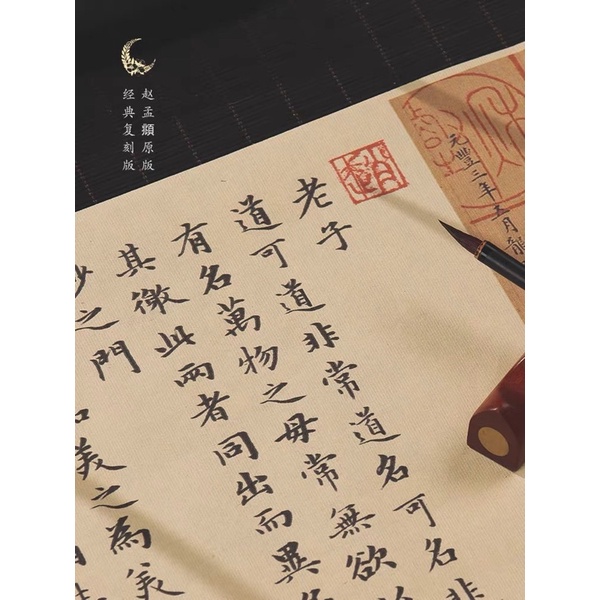 赵孟頫原版
经典复刻版
元豐三年五月龍
老子
道可道非常道名可名非
有名萬物之母常無欲
其徼此兩者同出而異名
妙之門
美之為美